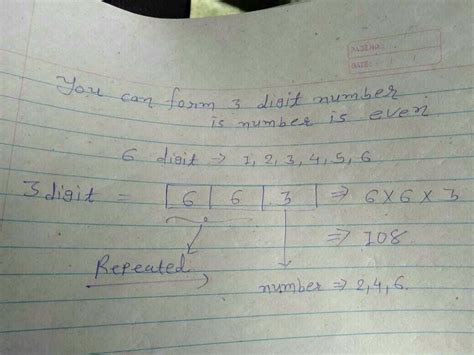 You can form 3 digit number
is number is even
6 digit ⇒ 1, 2, 3, 4, 5, 6
3 digit = 6 6 3 ⇒ 6 × 6 × 3
⇒ 108
Repeated
number ⇒ 2, 4, 6